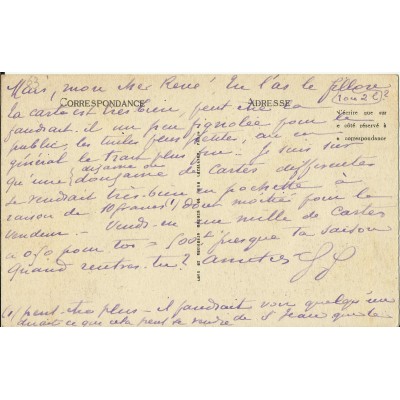 Mais, mon cher René! Tu l'as le fillon
(1 ou 2 l)?
CORRESPONDANCE
ADRESSE
la carte est très bien, peut être la
faudrait-il un peu fignolée pour le
public, les tuiles plus petites, au en
général le trait plus fin. Je suis sûr
qu'une dizaine de
douzaine de cartes différentes
se vendrait très bien en pochette à
raison de 10 francs! dont moitié pour le
vendeur - Vends-en un mille de cartes
à 0,50 pour toi = 500 presque ta saison
Quand rentres-tu? amitiés
(1) peut-être plus - il faudrait voir quelqu'un
dirait ce que cela peut se vendre de St Jean
L'écrire que sur
e côté réservé à
a correspondance